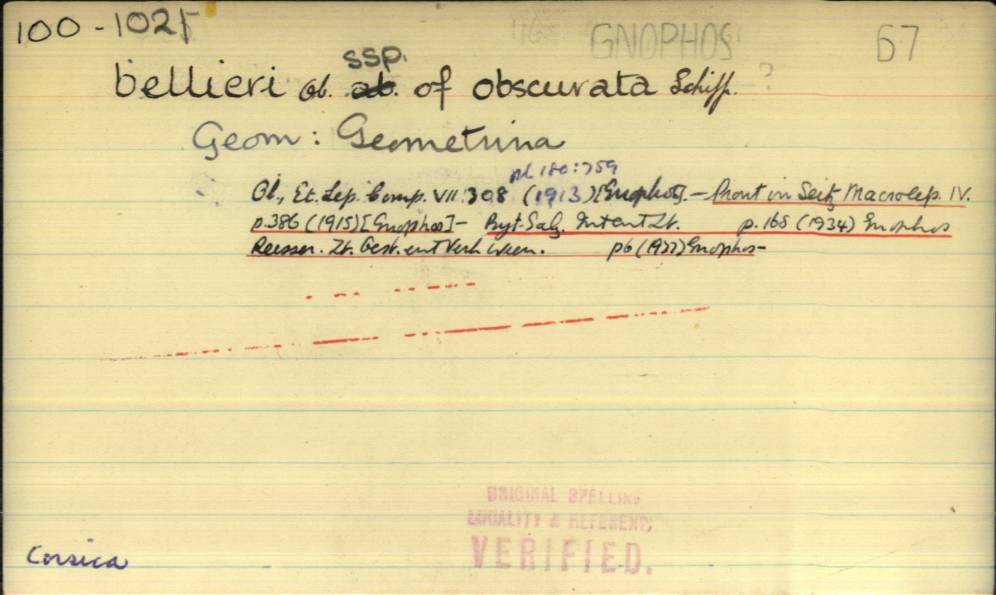 100-102
GNOPHOS 67
ssp.
bellieri Ob. ab. of obscurata Schiff. ?
Geom: Geometrina
pl 180:1759
Ob., Et. Lep. Comp. VII: 308 (1913)[Gnophos].— Prout in Seitz Macrolep. IV.
p.386 (1915)[Gnophos]— Int ent Zt. p.168 (1934) Gnophos
Reisser. Zt. Oest. ent Ver Wien. p6 Gnophos-
ORIGINAL SPELLING
LOCALITY & REFERENCE
VERIFIED.
Corsica